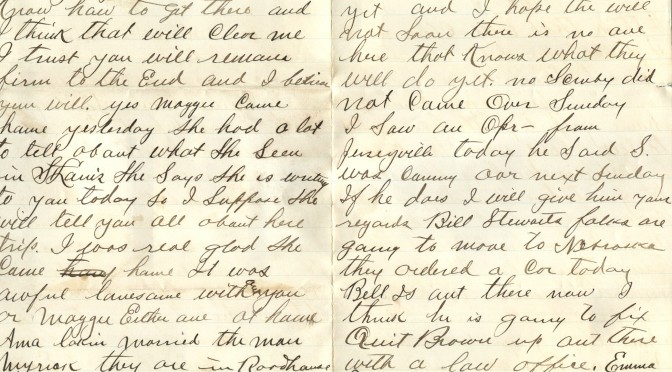 Know how to get there and
I think that will Clear me
I trust you will remain
firm to the End and I believe
you will. yes Maggie Came
home yesterday She had a lot
to tell about what She Seen
in She Says She is writing
to you today So I Suppose She
will tell you all about here
trip. I was real glad She
Came home It was
awful lonesome with you
or Maggie Either one at home
married the man
they are in Roodhouse
yet and I hope the will
not Soon there is no one
here that Knows what they
will do yet. no did
not Come Over Sunday
I Saw an Opr- from
today he Said S.
was Comeing our next Sunday
If he does I will give him your
regards Bill Stewarts folks are
going to move to
they ordered a Cor today
Bill Is out there now I
think he is going to fix
Brown up out there
with a law office. Emma